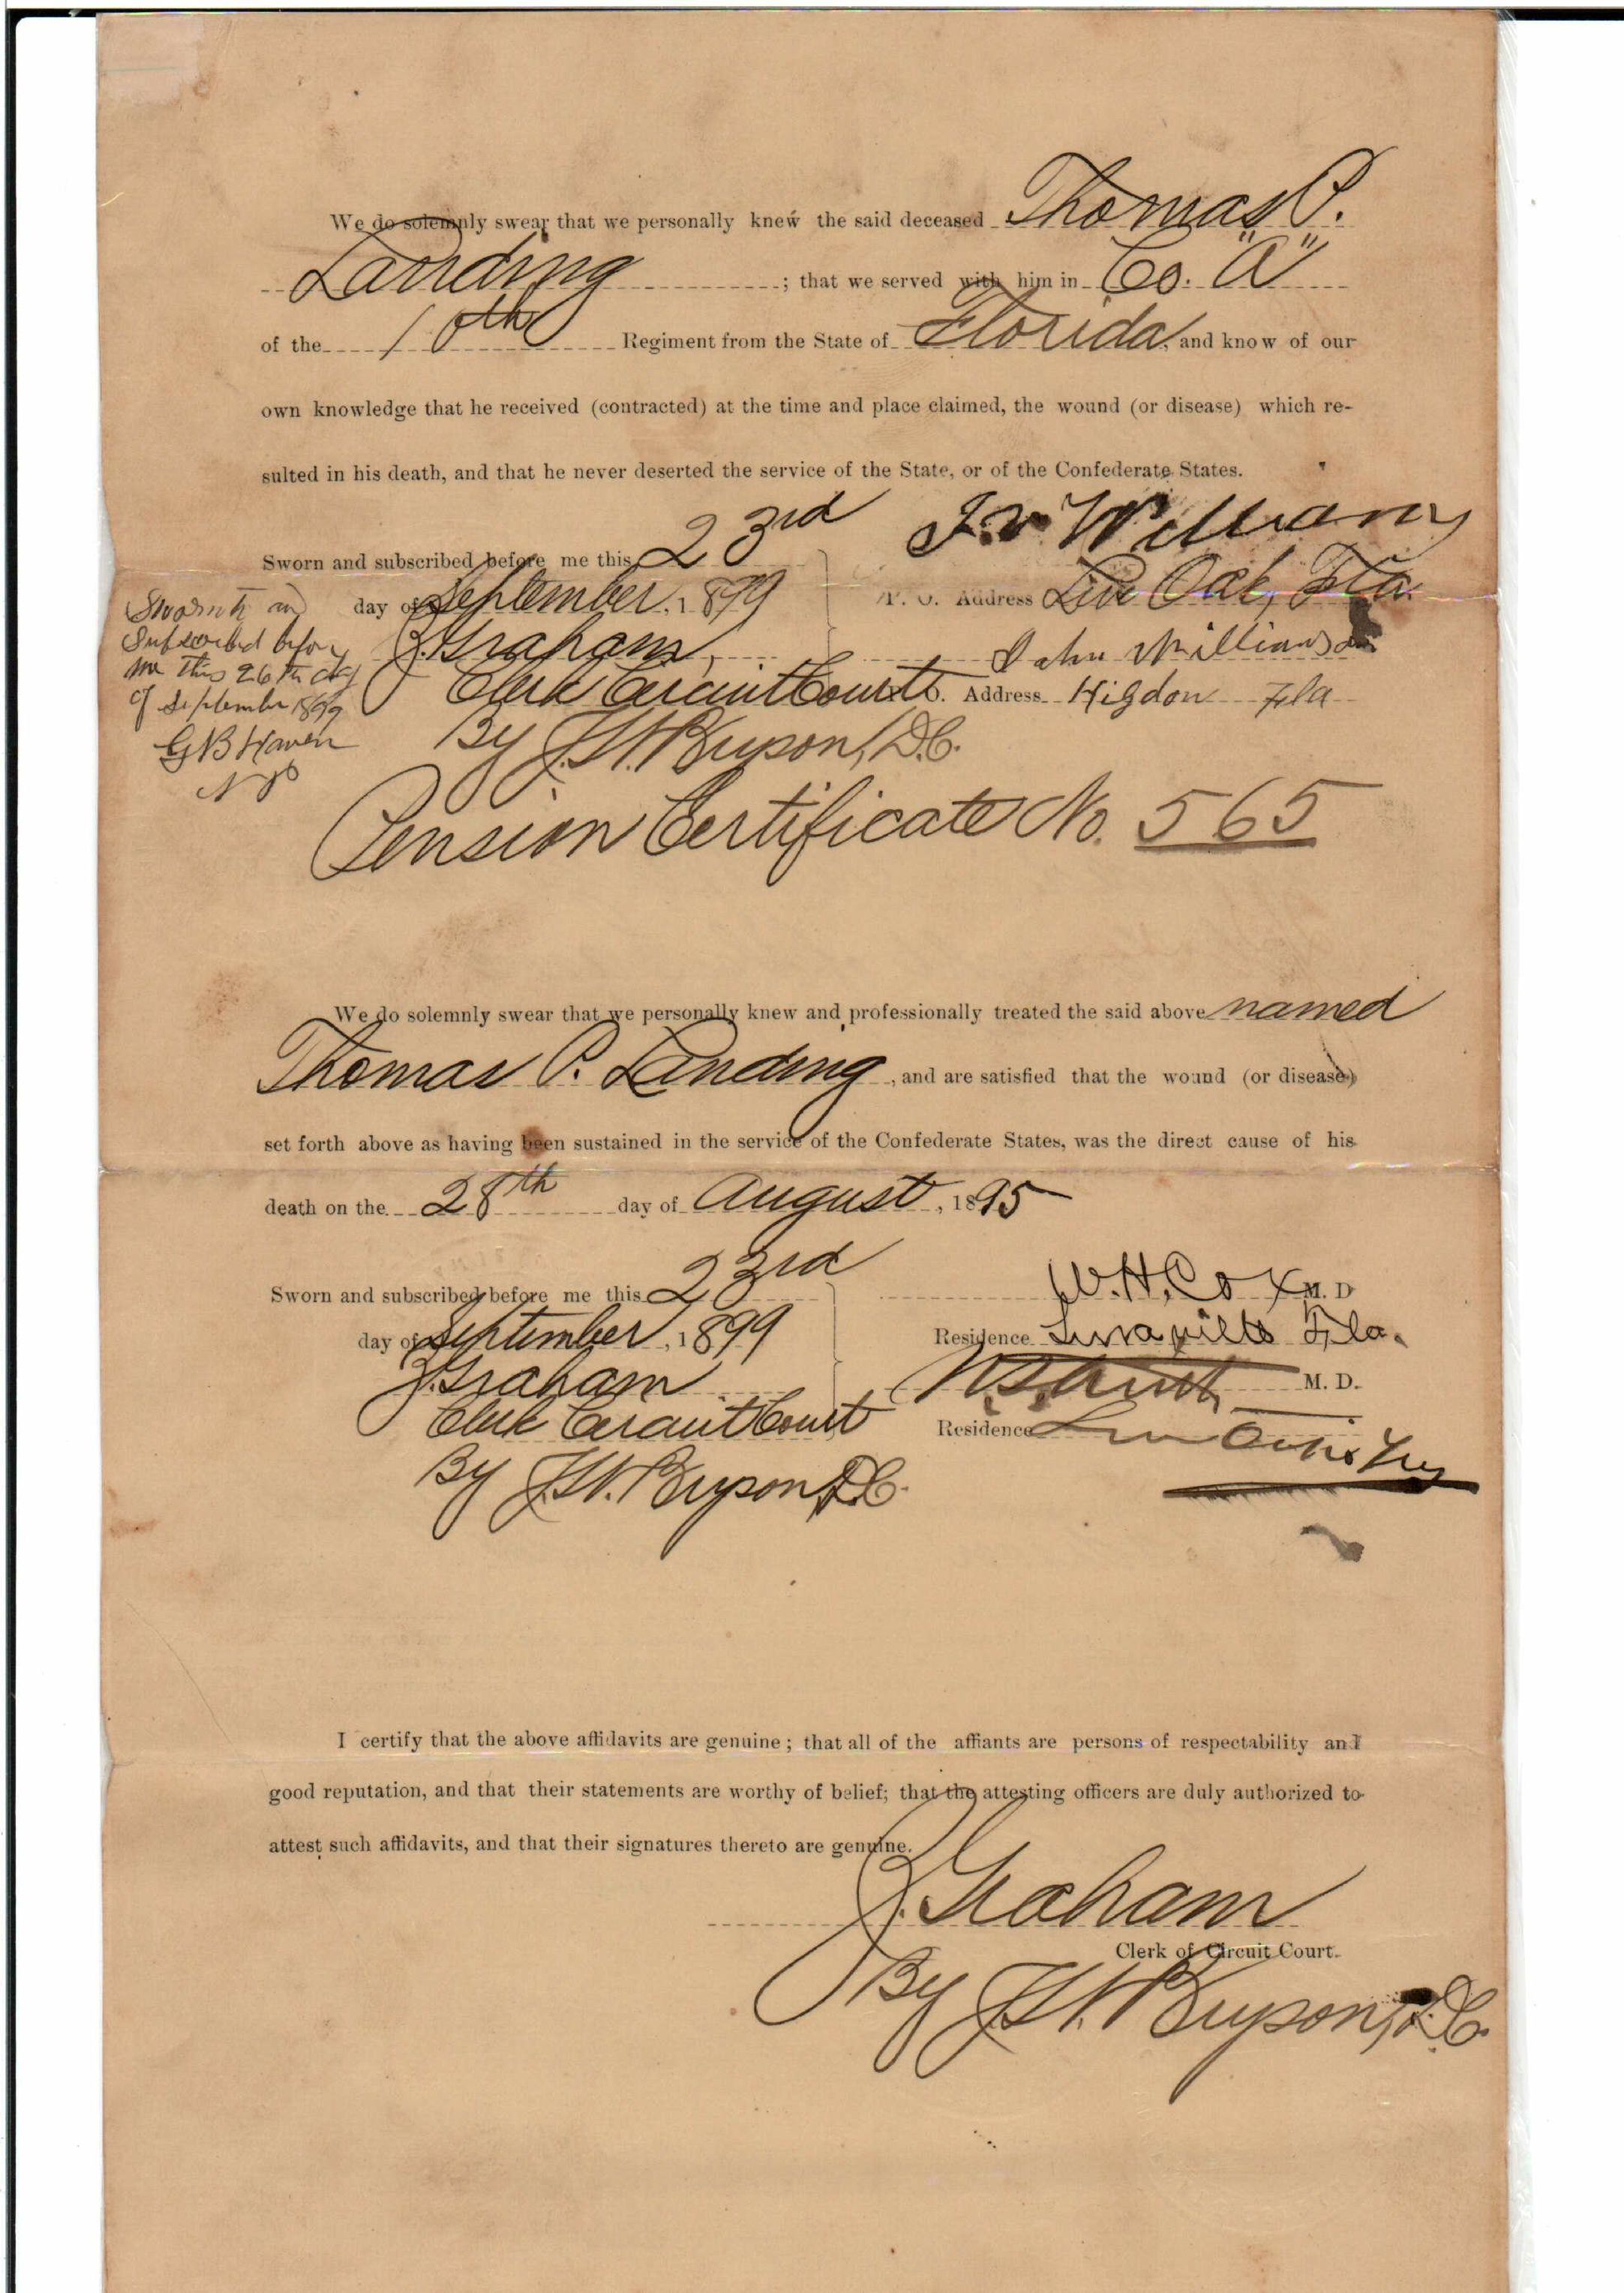 We do solemnly swear that we personally knew the said deceased Thomas P.
Landing ; that we served with him in Co. "A"
of the 10th Regiment from the State of Florida, and know of our
own knowledge that he received (contracted) at the time and place claimed, the wound (or disease) which re-
sulted in his death, and that he never deserted the service of the State, or of the Confederate States.
Sworn and subscribed before me this 23rd
day of September, 1899
J. Graham,
Clerk Circuit Court
By J.W. Bryson, D.C.
Sworn to and
Subscribed before
me this 26th day
of September 1899
G B Haven
N P
Williams
P. O. Address Live Oak, Fla.
John Williams
P. O. Address Higdon Fla
Pension Certificate No. 565
We do solemnly swear that we personally knew and professionally treated the said above named
Thomas P. Landing, and are satisfied that the wound (or disease)
set forth above as having been sustained in the service of the Confederate States, was the direct cause of his
death on the 28th day of August, 1895
Sworn and subscribed before me this 23rd
day of September, 1899
J. Graham
Clerk Circuit Court
By J.W. Bryson, D.C.
W. H. Cox M. D
Residence Fla.
M. D.
Residence
I certify that the above affidavits are genuine; that all of the affiants are persons of respectability and
good reputation, and that their statements are worthy of belief; that the attesting officers are duly authorized to
attest such affidavits, and that their signatures thereto are genuine.
J. Graham
Clerk of Circuit Court.
By J.W. Bryson, D.C.